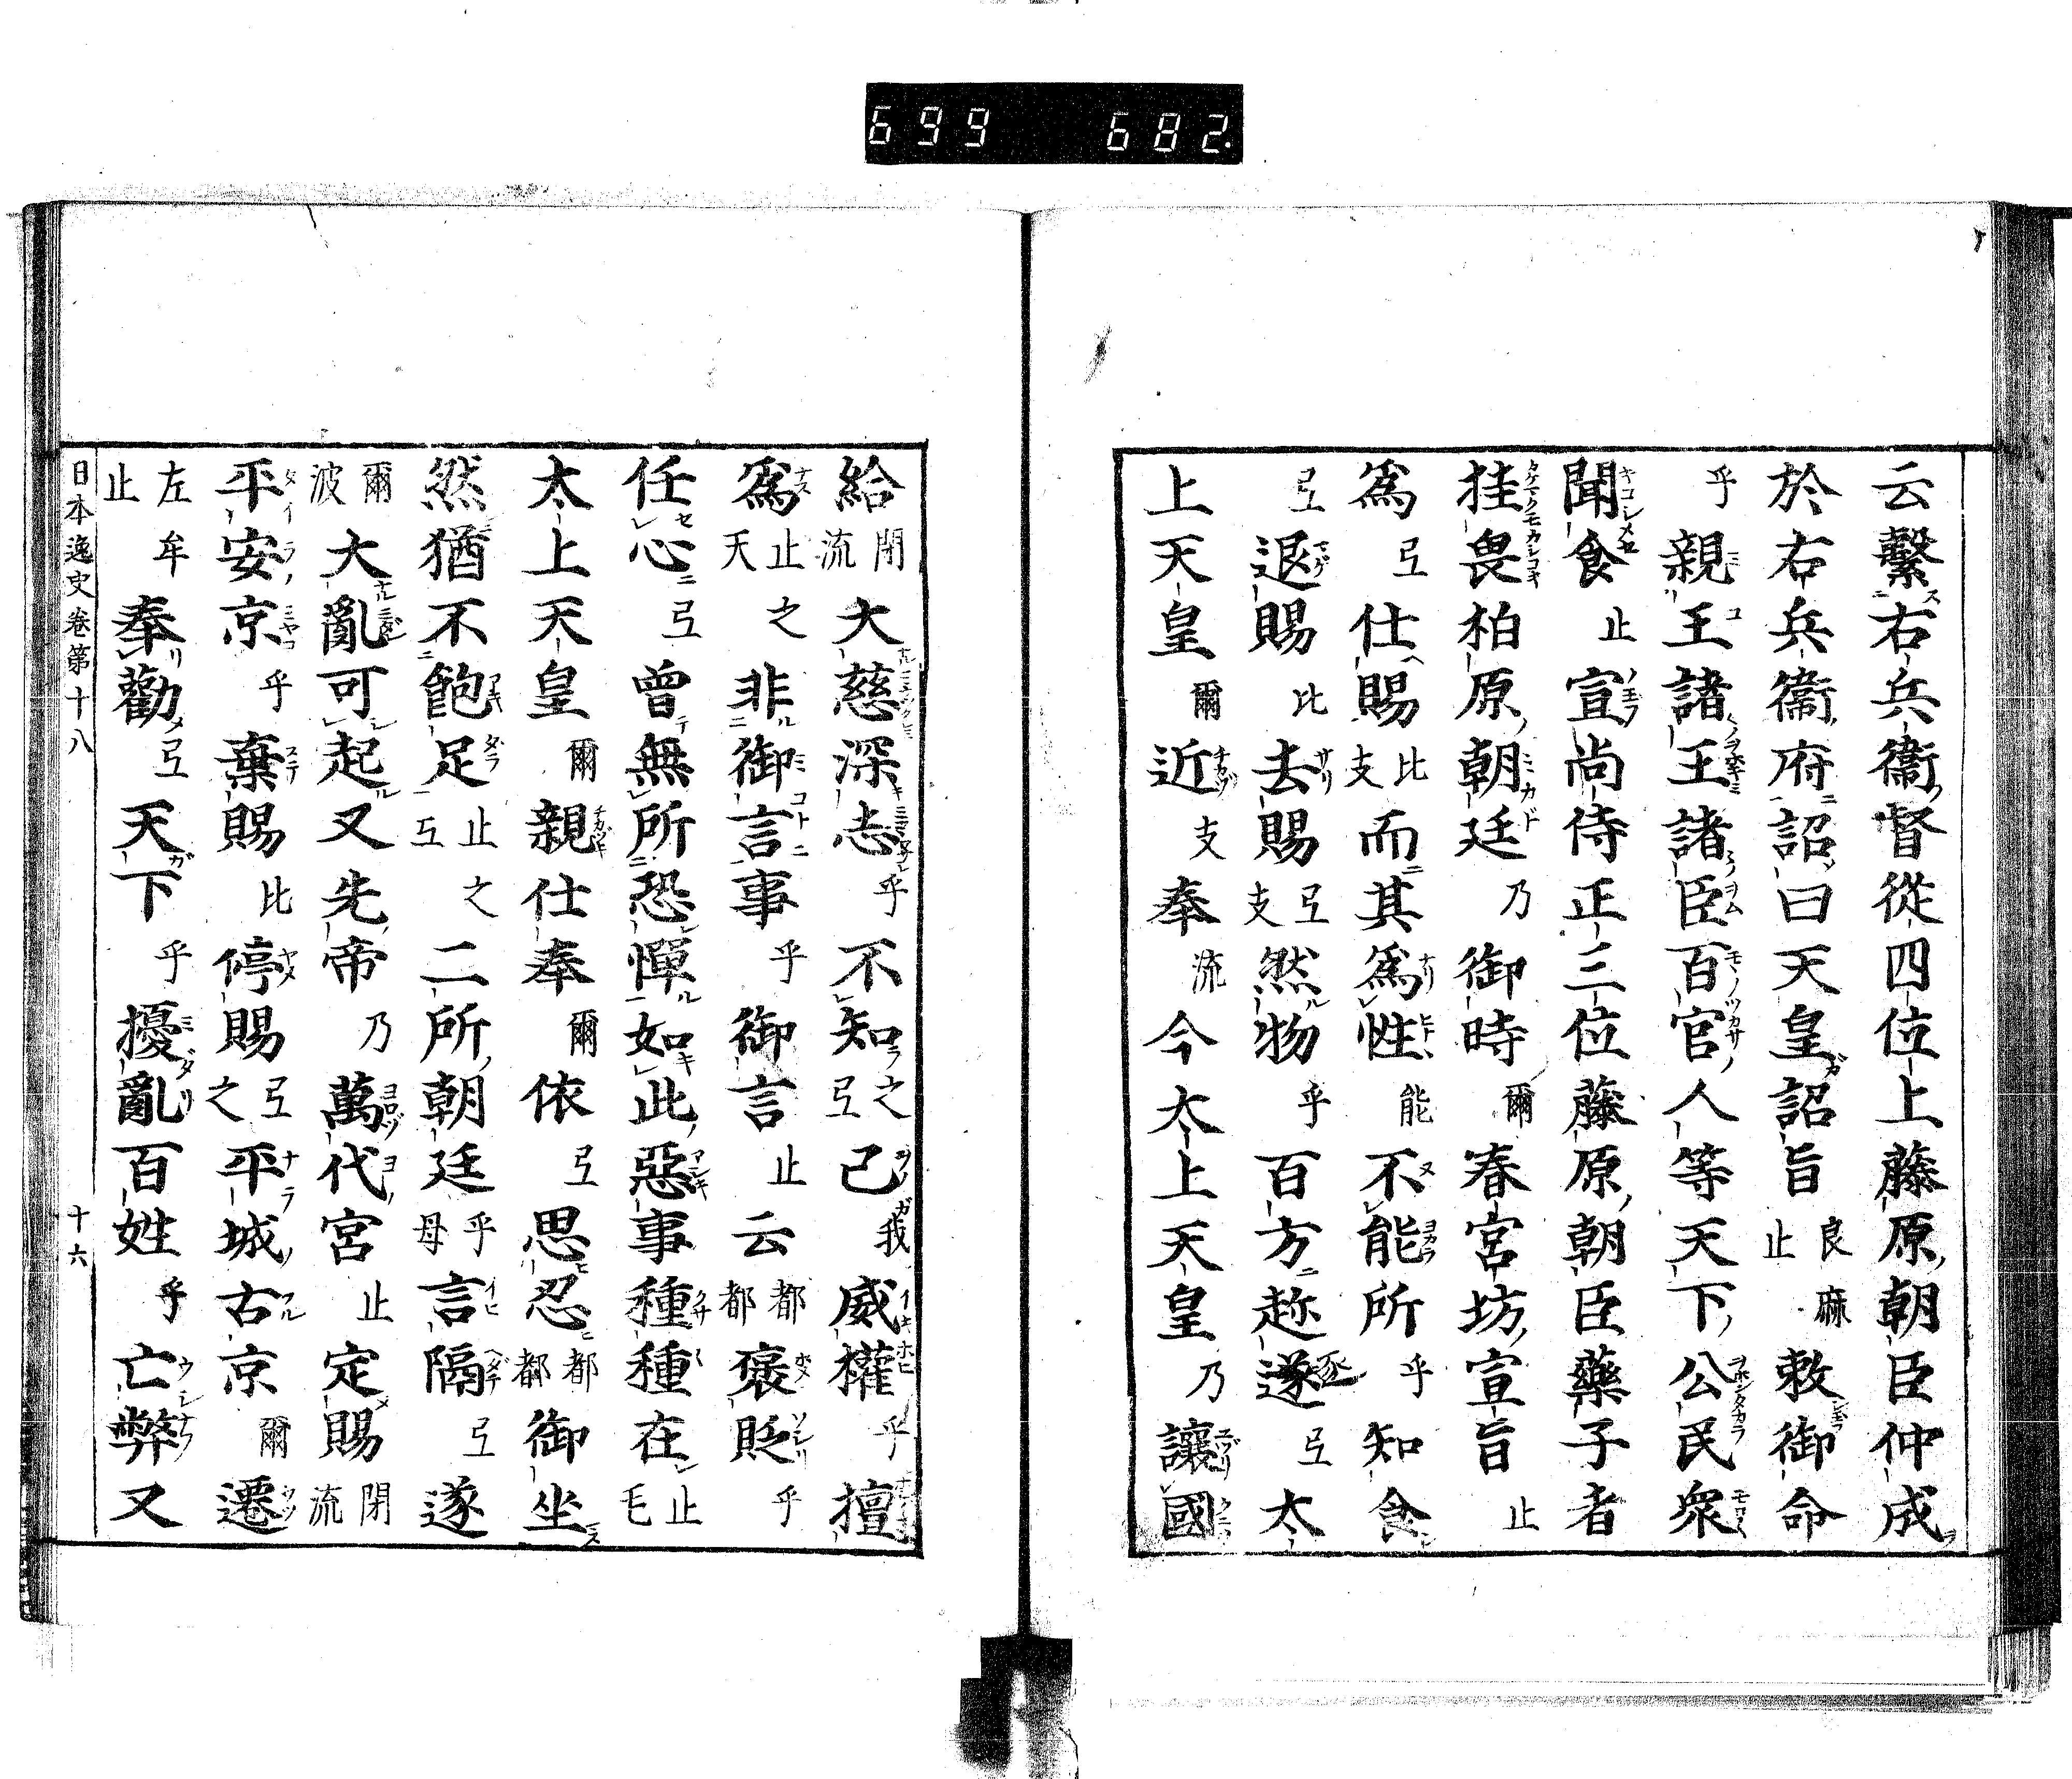 699 682.
云繫右兵衞督從四位上藤原朝臣仲成
於右兵衞府詔曰天皇詔旨良麻止敕御命
乎親王諸王諸臣百官人等天下公民衆
聞食止宣尚侍正三位藤原朝臣藥子者
挂畏柏原朝廷乃御時爾春宮坊宣旨止
爲弖仕賜比支而其爲性能不能所乎知食
弖退賜比去賜弖支然物乎百方趂逐弖太
上天皇爾近支奉流今太上天皇乃讓國
給閇流大慈深志乎不知之弖己我威權乎擅
爲止天之非御言事乎御言止云都都褒貶乎
任心弖曾無所恐憚如此惡事種種在止毛
太上天皇爾親仕奉爾依弖思忍都都御坐
然猶不飽足止弖之二所朝廷乎母言隔弖遂
爾波大亂可起又先帝乃萬代宮止定賜閇流
平安京乎棄賜比停賜弖之平城古京爾遷
左牟止奉勸弖天下乎擾亂百姓乎亡弊又
日本逸史卷第十八 十六